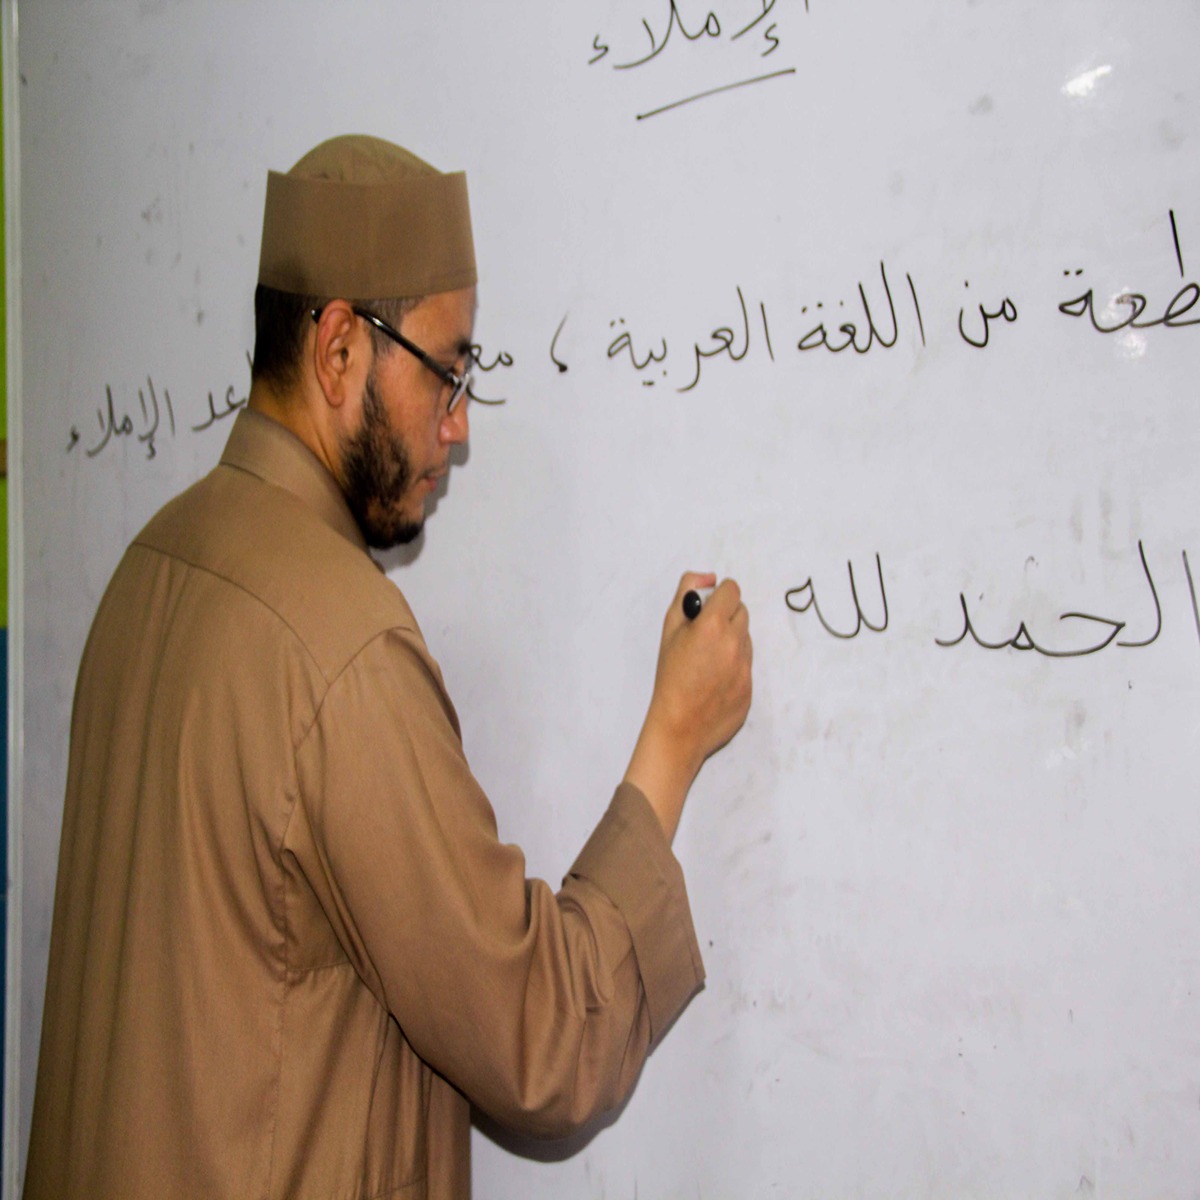 الإملاء
طعة من اللغة العربية ، مع عد الإملاء
الحمد لله